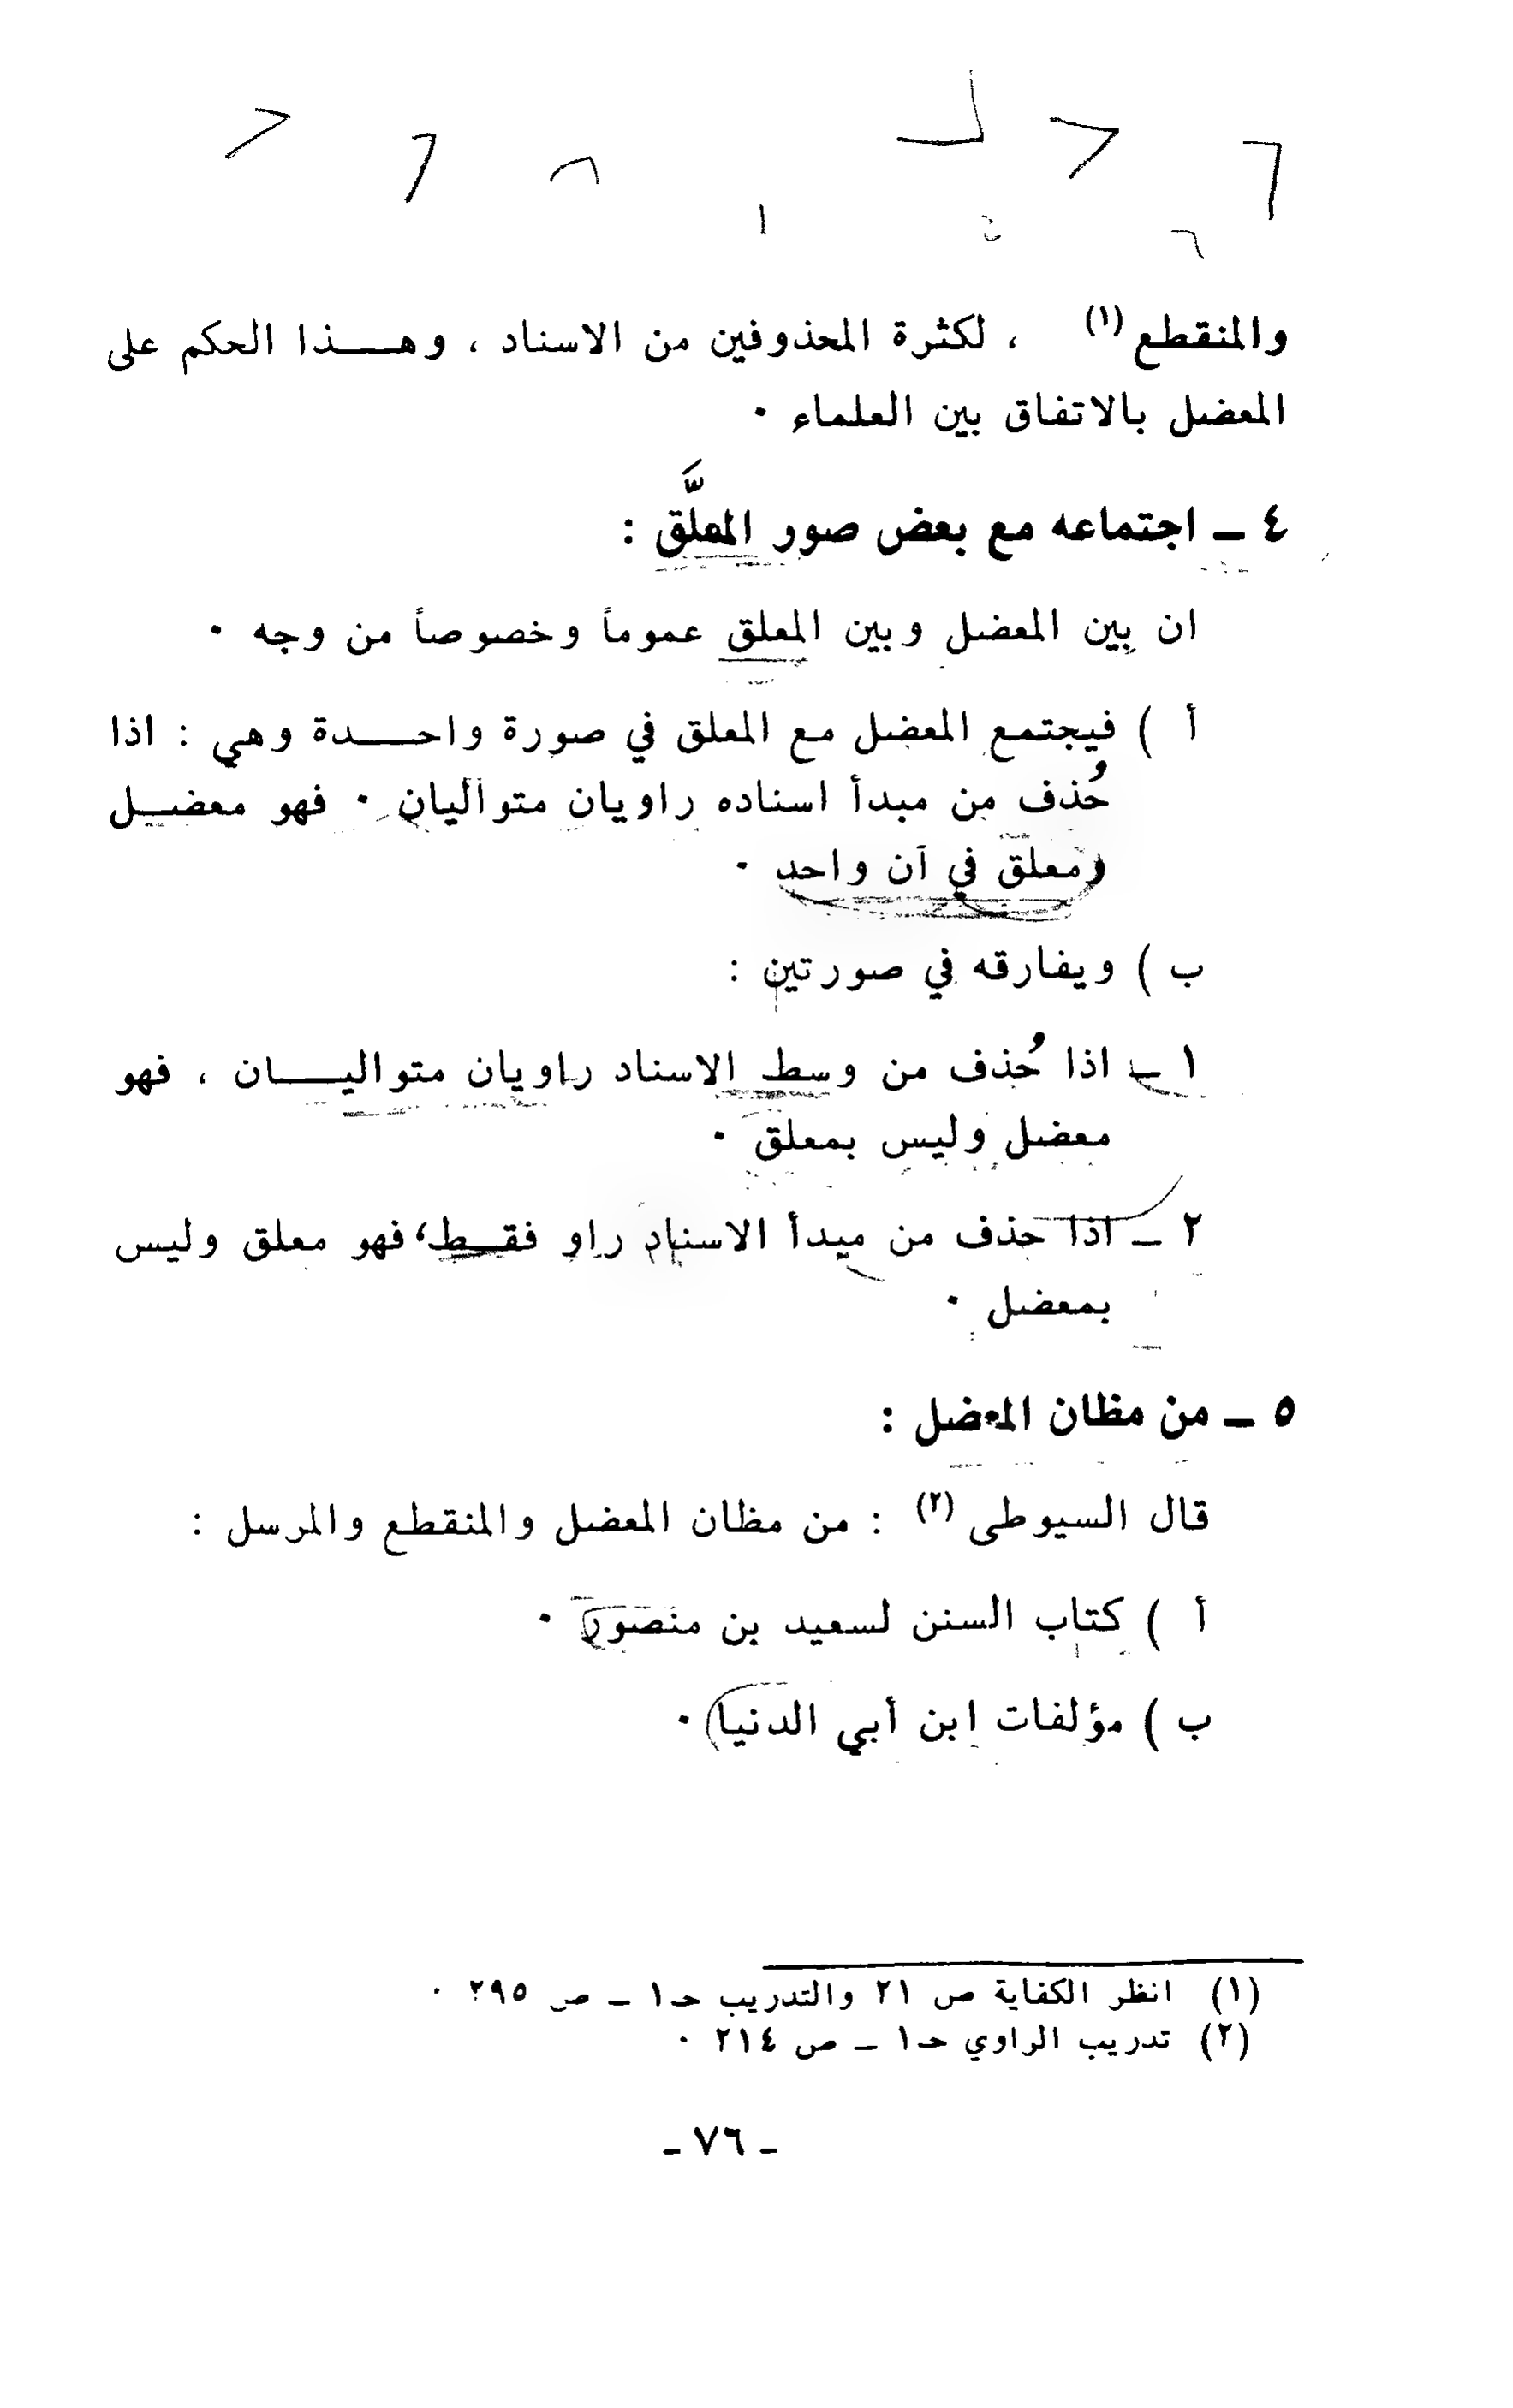 والمنقطع (١) ، لكثرة المحذوفين من الاسناد ، وهـــذا الحكم على
المعضل بالاتفاق بين العلماء ٠
٤ ـ اجتماعه مع بعض صور المعلَّق :
ان بين المعضل وبين المعلق عموماً وخصوصاً من وجه ٠
أ ) فيجتمع المعضل مع المعلق في صورة واحـــدة وهي : اذا
حُذف من مبدأ اسناده راويان متواليان ٠ فهو معضـل
ومعلق في آن واحد ٠
ب ) ويفارقه في صورتين :
١ ـ اذا حُذف من وسط الاسناد راويان متواليـــان ، فهو
معضل وليس بمعلق ٠
٢ ـ اذا حذف من مبدأ الاسناد راو فقـط، فهو معلق وليس
بمعضل ٠
٥ ـ من مظان المعضل :
قال السيوطى (٢) : من مظان المعضل والمنقطع والمرسل :
أ ) كتاب السنن لسعيد بن منصور ٠
ب ) مؤلفات ابن أبي الدنيا ٠
(١) انظر الكفاية ص ٢١ والتدريب حـ١ ـ ص ٢٩٥ ٠
(٢) تدريب الراوي حـ١ ـ ص ٢١٤ ٠
ـ ٧٦ ـ